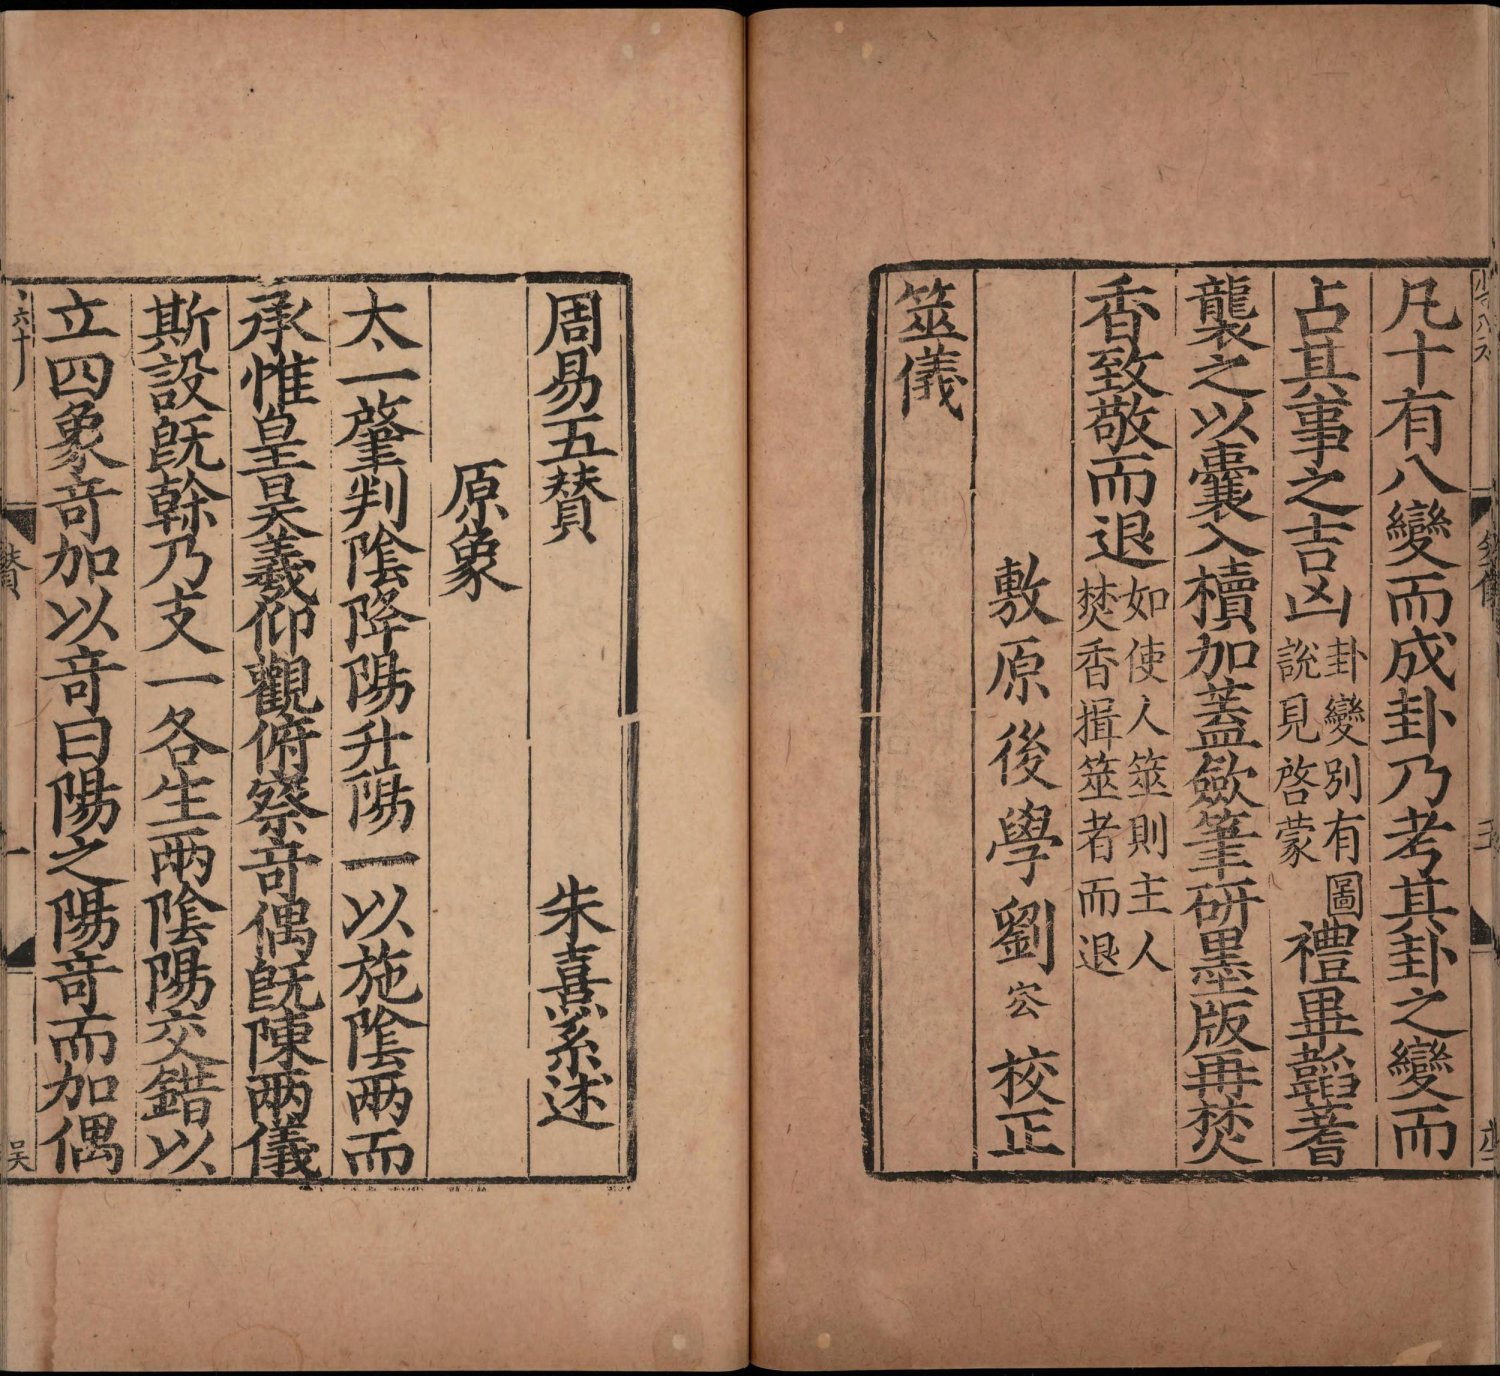 凡十有八變而成卦乃考其卦之變而
占其事之吉凶卦變別有圖說見啓蒙禮畢韜蓍
襲之以囊入櫝加蓋斂筆硏墨版再焚
香致敬而退如使人筮則主人焚香揖筮者而退
敷原後學劉㝐校正
筮儀
周易五贊
朱熹系述
原象
太一肇判陰降陽升陽一以施陰兩而
承惟皇昊羲仰觀俯察奇偶旣陳兩儀
斯設旣幹乃支一各生兩陰陽交錯以
立四象奇加以奇曰陽之陽奇而加偶
六十
贊
一
吴
筮儀
五